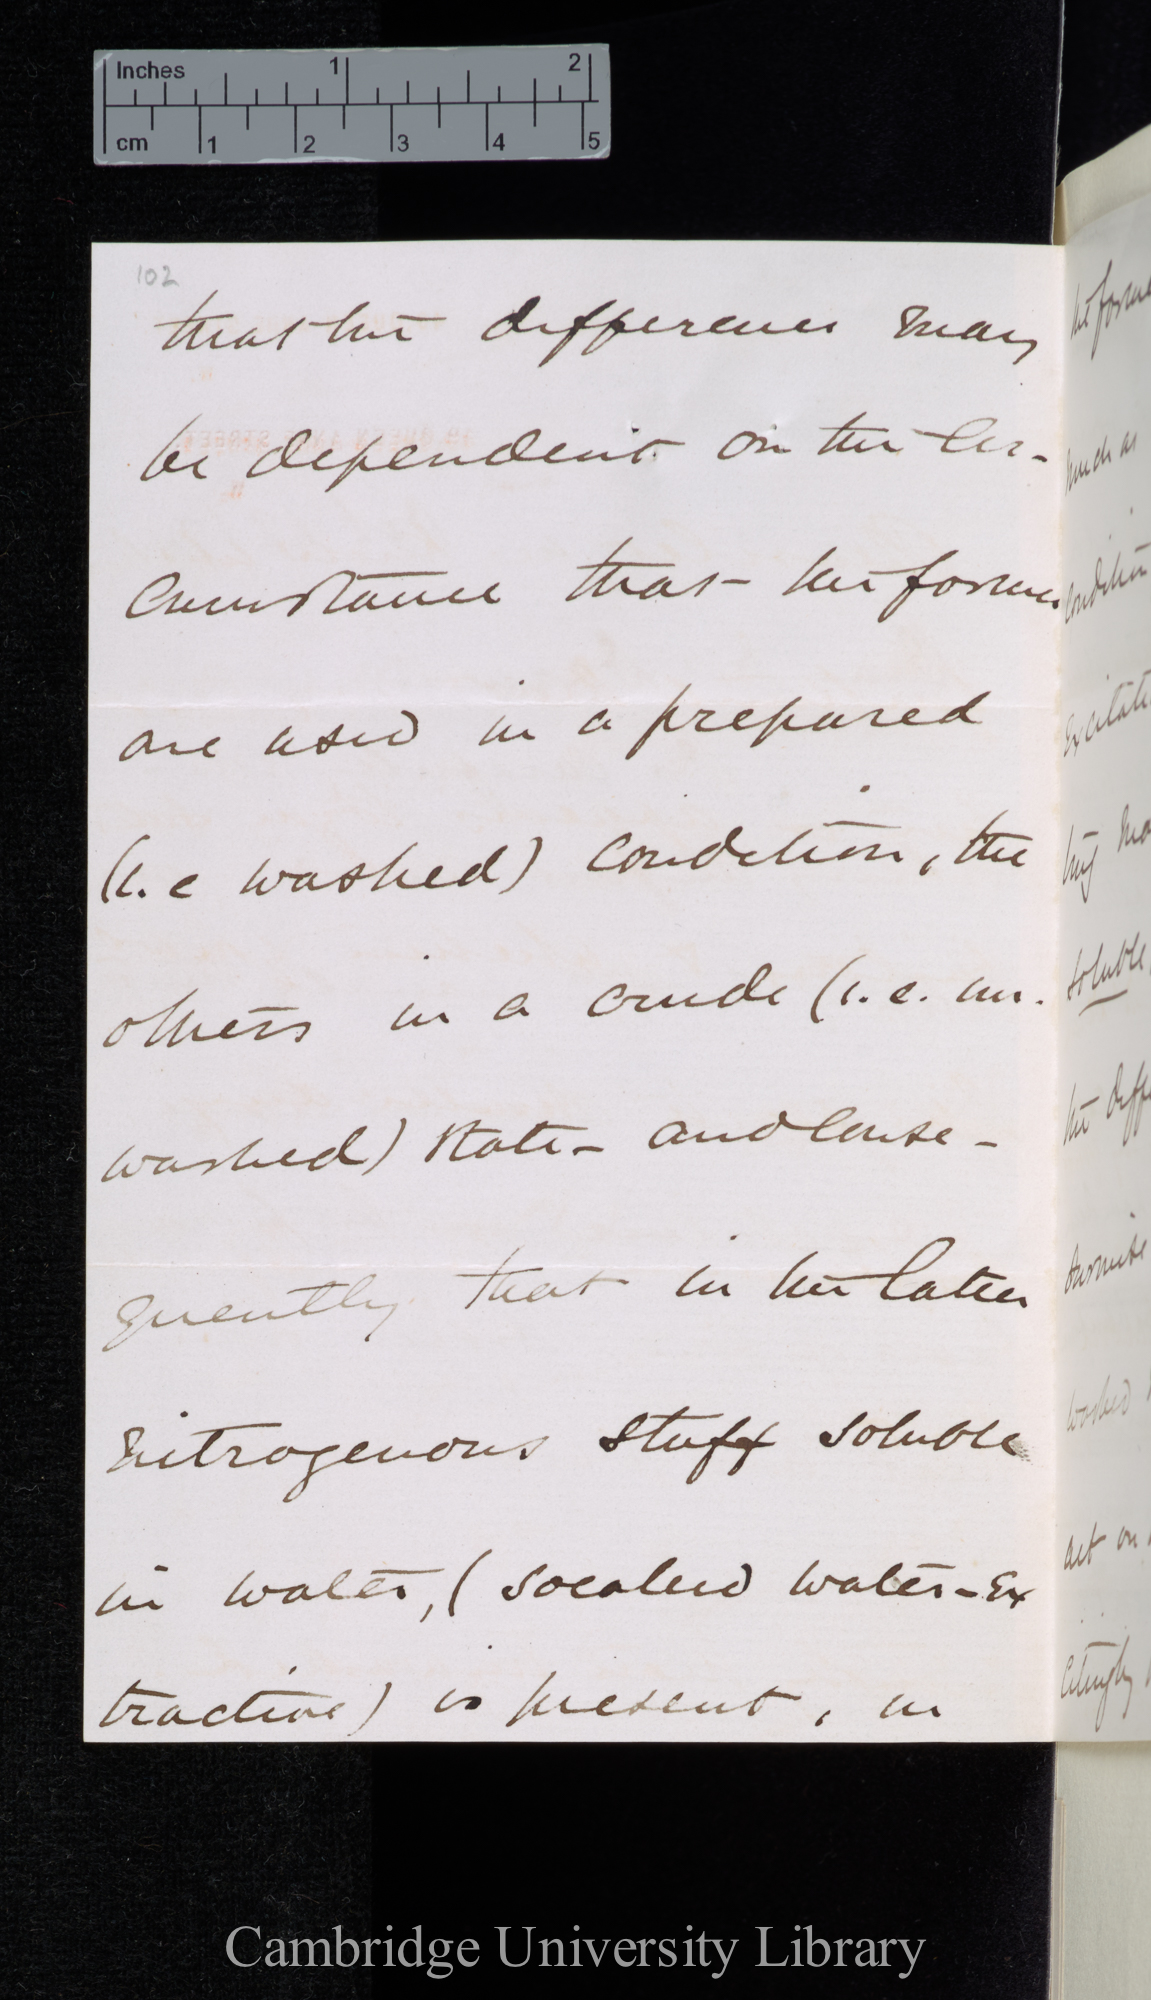 Inches 1 2
cm 1 2 3 4 5
102
that the difference may
be dependent on the cir-
cumstance that the former
are used in a prepared
(i.e washed) condition, the
others in a crude (i.e. un-
washed) state – and conse-
quently that in the latter
nitrogenous stuff soluble
in water, (so called water-ex
tractive) is present, in
the forme
much as
condition
excitati
ing mo
soluble
the diffe
surmise
washed
act on
citingly
Cambridge University Library